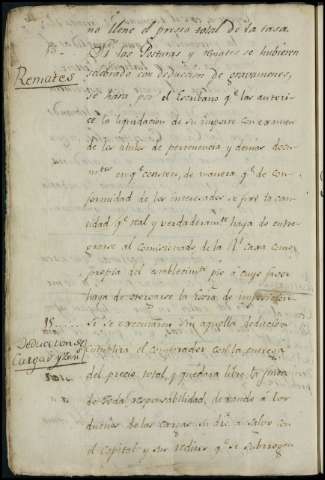 no llene el precio total de la tasa.
Remates
Si las Posturas y remates se hubieren
celebrado con deduccion de gravamenes,
se hará por el Escribano q.e las autori-
ce la liquidacion de su importe con examen
de los titulos de pertenencia y demas docum
tos en q.e consten, de manera q.e de con-
formidad de los interesados se fixe la can-
tidad q.e real y verdaderam.te haya de entre-
garse al comisionado de la R.l Caxa como
propia del establecim.to pio á cuyo favor
haya de otorgarse la de imposicion
15
Si se executaren sin aquella deducion
Deduccion de
Cargas y Cen
sos.
cumplirá el comprador con la entrega
del precio total, y quedará libre la finca
de toda responsabilidad, dexando á los
dueños de las cargas su dro. á salvo con
el capital y sus reditos q.e se subroguen